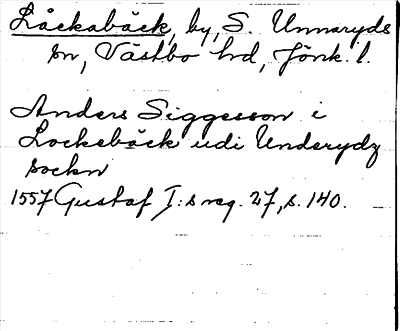 Låckabäck, by, S. Unnaryds
sn, Västbo hd, Jönk. l.
Anders Siggesson i
Lockebäck udi Underydz
sockn
1557 Gustaf I:s reg. 27, s. 140.